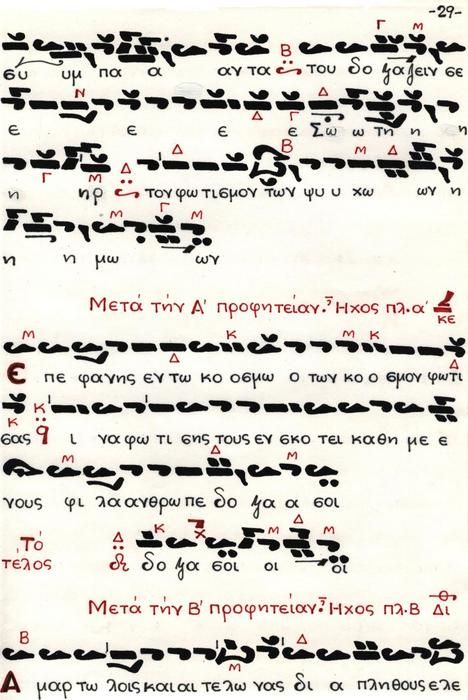 -29-
συ υμ πα α αν τα του δο ξα ζειν σε
ε ε ε ε Σω ω τη η η
η ηρ τον φω τισμον των ψυ υ χω ων η
η η μω ων
Μετά τήν Α' προφητείαν. Ἦχος πλ. α' κε
Ε πε φανης εν τω κο οσμω ο τον κο ο σμον φωτι
σας ι να φω τι σης τους εν σκο τει καθη με ε
νους φι λα ανθρω πε δο ξα α σοι
Τό τέλος δο ξα σοι οι οι
Μετά τήν Β' προφητείαν. Ἦχος πλ. Β Δι
Α μαρ τω λοις και αι τε λω ναις δι α πληθους ελε